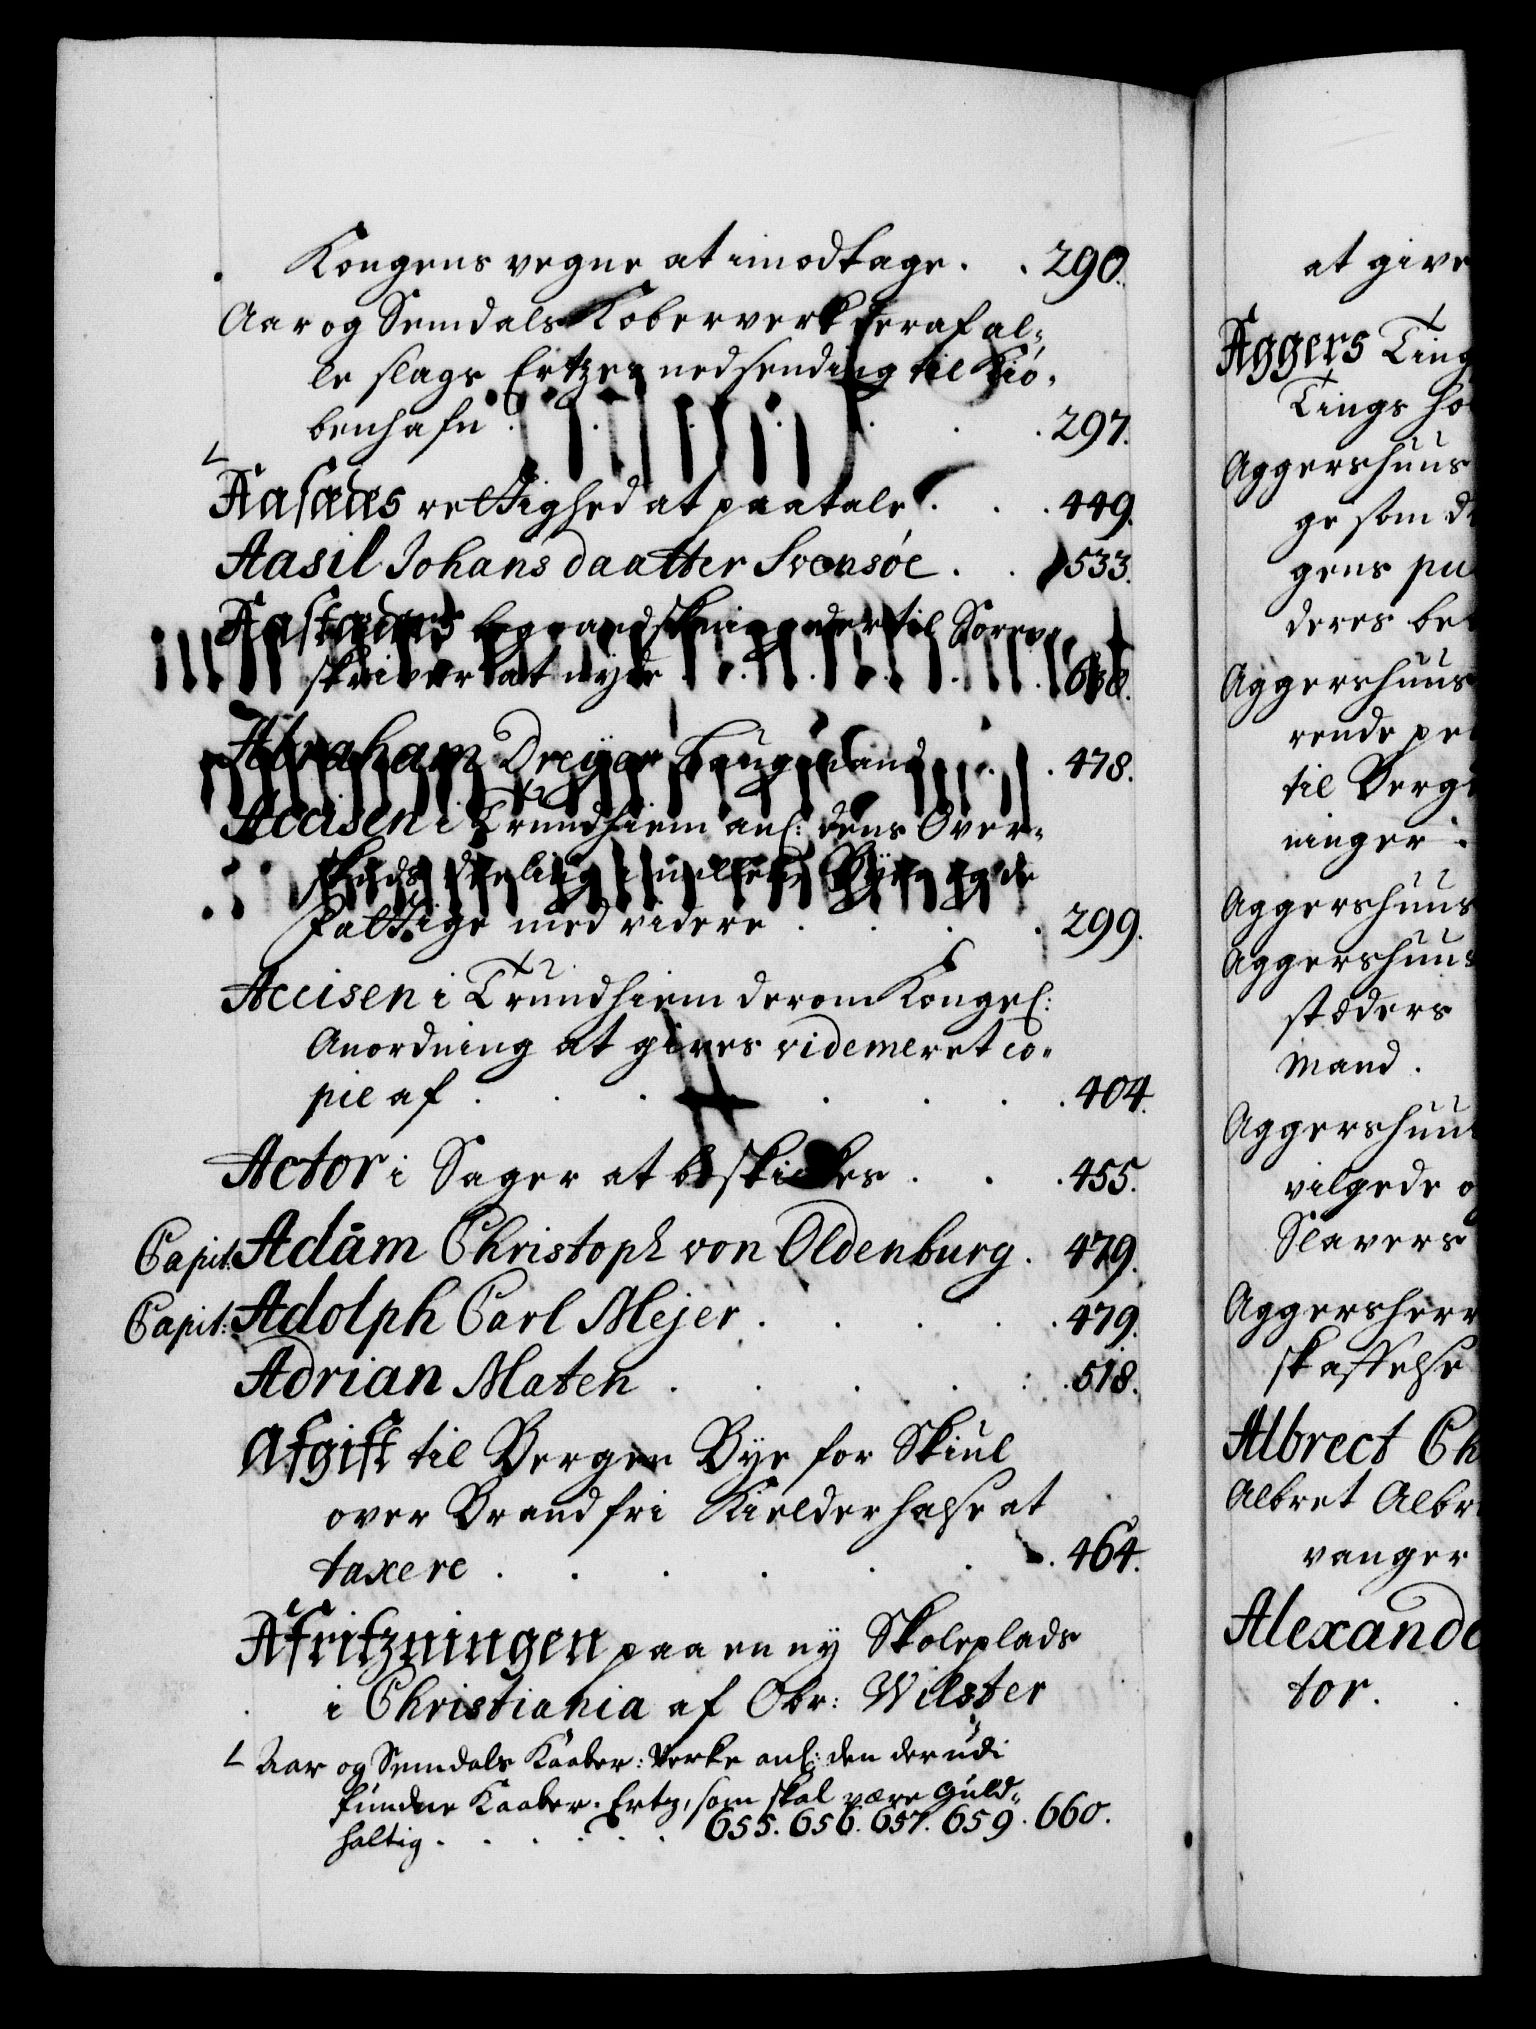 Kongens vegne at imodtage . . 290.
Aar og Semdals Koberverk deraf al-
le slags Ertzes nedsending til Kiö-
benhafn . . . . . . . 297.
Aasædes rettighed at paatale . . . 449.
Aasil Johansdaatter Svensøe . . . 533.
til Soren-
skriver at nyde . . . . . 638.
Abraham Dreyer Laugmand . . . 478.
Accisen i Trundhiem anl: dens Over-
skuds deeling imellem Byen og de
fattige med videre . . . . 299.
Accisen i Trundhiem derom Kongel:
Anordning at gives videmeret co-
pie af . . . . . . . 404.
Actor i Sager at beskickes . . . 455.
Capit: Adam Christoph von Oldenburg . 479.
Capit: Adolph Carl Mejer . . . . . 479.
Adrian Maten . . . . . . 518.
Afgift til Bergen Bye for Skiul
over Brandfri Kielderhalse at
taxere . . . . . . . 464.
Afritzningen paa en ny Skoleplads
i Christiania af Obr: Wilster
Aar og Semdals Kaaber: Verke anl: den derudi
fundne Kaaber-Ertz, som skal være Guld-
haltig . . . . . . 655. 656. 657. 659. 660.
at give
Aggers Ting
Tings ho
Aggershuus
ge som d
gens pu
deres be
Aggershuus
rende pe
til Berg
ninger .
Aggershuus
Aggershuus
stæders
Mand .
Aggershuus
vilgede o
Slavers
Aggersherr
skaffelse
Albrect Ch
Albret Albr
vanger
Alexande
tor .